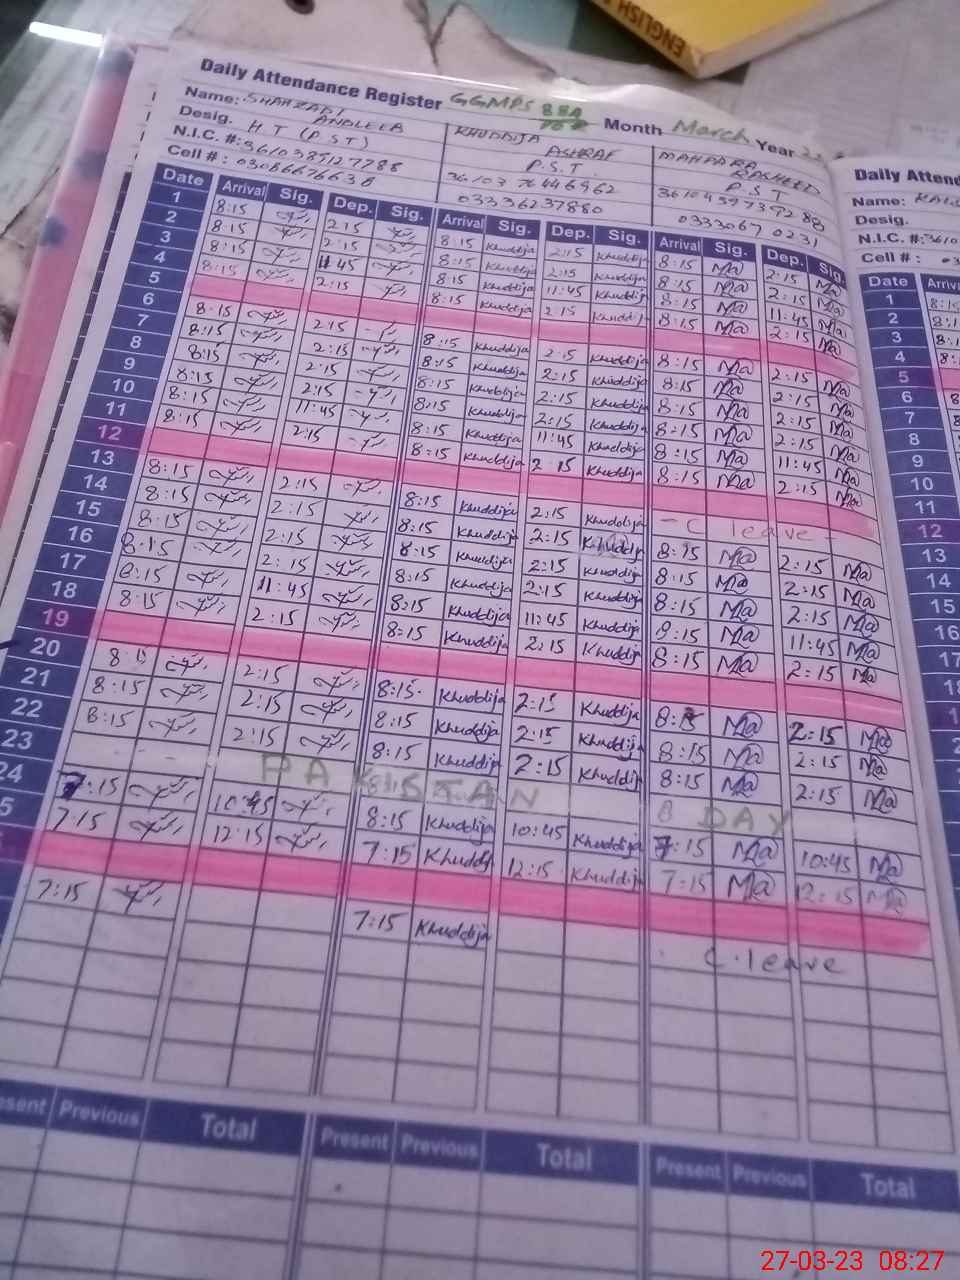 ENGLISH
Daily Attendance Register GGMPS 88A Month March Year
Name: SHAHZADI ANDLEEB
KHUDDIJA ASHRAF
MAHPARA RASHEED
Desig. H T (P S T)
P.S.T.
P S T
N.I.C. #: 3610385127788
36103 76446962
Cell # : 03086676638
03336237880
0333067 0231
Daily Attend
Name:
Desig.
N.I.C. #: 3610
Cell # :
Date Arrival Sig. Dep. Sig. Arrival Sig. Dep. Sig. Arrival Sig. Dep. Sig.
1 8:15 2:15 8:15 Khuddija 2:15 Khuddija 8:15 Ma 2:15 Ma
2 8:15 2:15 8:15 Khuddija 2:15 Khuddija 8:15 Ma 2:15 Ma
3 8:15 11:45 8:15 Khuddija 11:45 Khuddija 8:15 Ma 11:45 Ma
4 8:15 2:15 8:15 Khuddija 2:15 Khuddija 8:15 Ma 2:15 Ma
5
6 8:15 2:15 8:15 Khuddija 2:15 Khuddija 8:15 Ma 2:15 Ma
7 8:15 2:15 8:15 Khuddija 2:15 Khuddija 8:15 Ma 2:15 Ma
8 8:15 2:15 8:15 Khuddija 2:15 Khuddija 8:15 Ma 2:15 Ma
9 8:15 2:15 8:15 Khuddija 2:15 Khuddija 8:15 Ma 2:15 Ma
10 8:15 11:45 8:15 Khuddija 11:45 Khuddija 8:15 Ma 11:45 Ma
11 8:15 2:15 8:15 Khuddija 2:15 Khuddija 8:15 Ma 2:15 Ma
12
13 8:15 2:15 8:15 Khuddija 2:15 Khuddija - C leave -
14 8:15 2:15 8:15 Khuddija 2:15 Khuddija 8:15 Ma 2:15 Ma
15 8:15 2:15 8:15 Khuddija 2:15 Khuddija 8:15 Ma 2:15 Ma
16 8:15 2:15 8:15 Khuddija 2:15 Khuddija 8:15 Ma 2:15 Ma
17 8:15 11:45 8:15 Khuddija 11:45 Khuddija 8:15 Ma 11:45 Ma
18 8:15 2:15 8:15 Khuddija 2:15 Khuddija 8:15 Ma 2:15 Ma
19
20 8:15 2:15 8:15 Khuddija 2:15 Khuddija 8:15 Ma 2:15 Ma
21 8:15 2:15 8:15 Khuddija 2:15 Khuddija 8:15 Ma 2:15 Ma
22 8:15 2:15 8:15 Khuddija 2:15 Khuddija 8:15 Ma 2:15 Ma
23 PAKISTAN DAY
24 7:15 10:45 8:15 Khuddija 10:45 Khuddija 7:15 Ma 10:45 Ma
5 7:15 12:15 7:15 Khuddija 12:15 Khuddija 7:15 Ma 12:15 Ma
7:15 7:15 Khuddija C.leave
Date Arriv
1 8:15
2
3
4
5
6
7
8
9
10
11
12
13
14
15
16
17
esent Previous Total Present Previous Total Present Previous Total
27-03-23 08:27